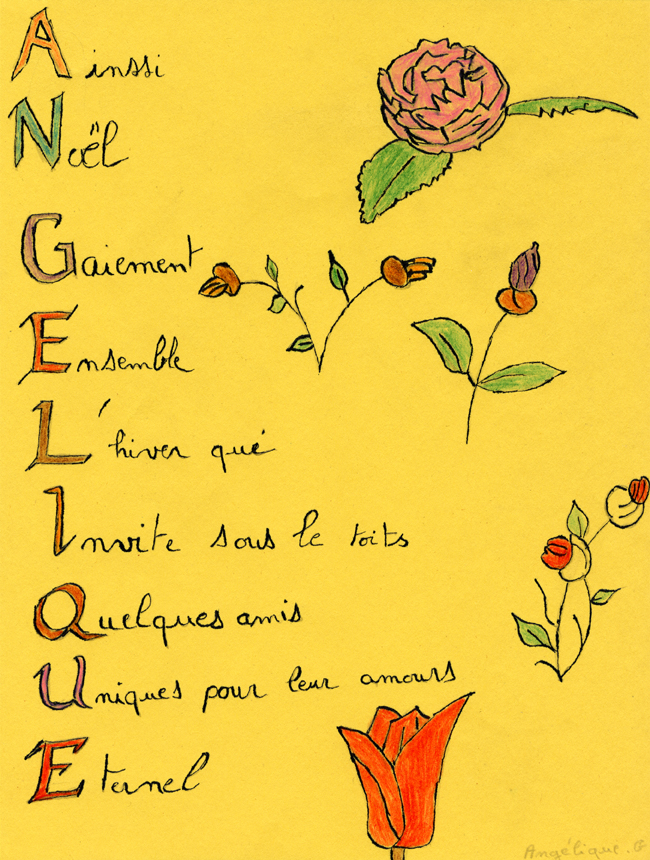 Ainssi
Noël
Gaiement
Ensemble
L'hiver qué
Invite sous le toits
Quelques amis
Uniques pour leur amours
Eternel
Angélique. G